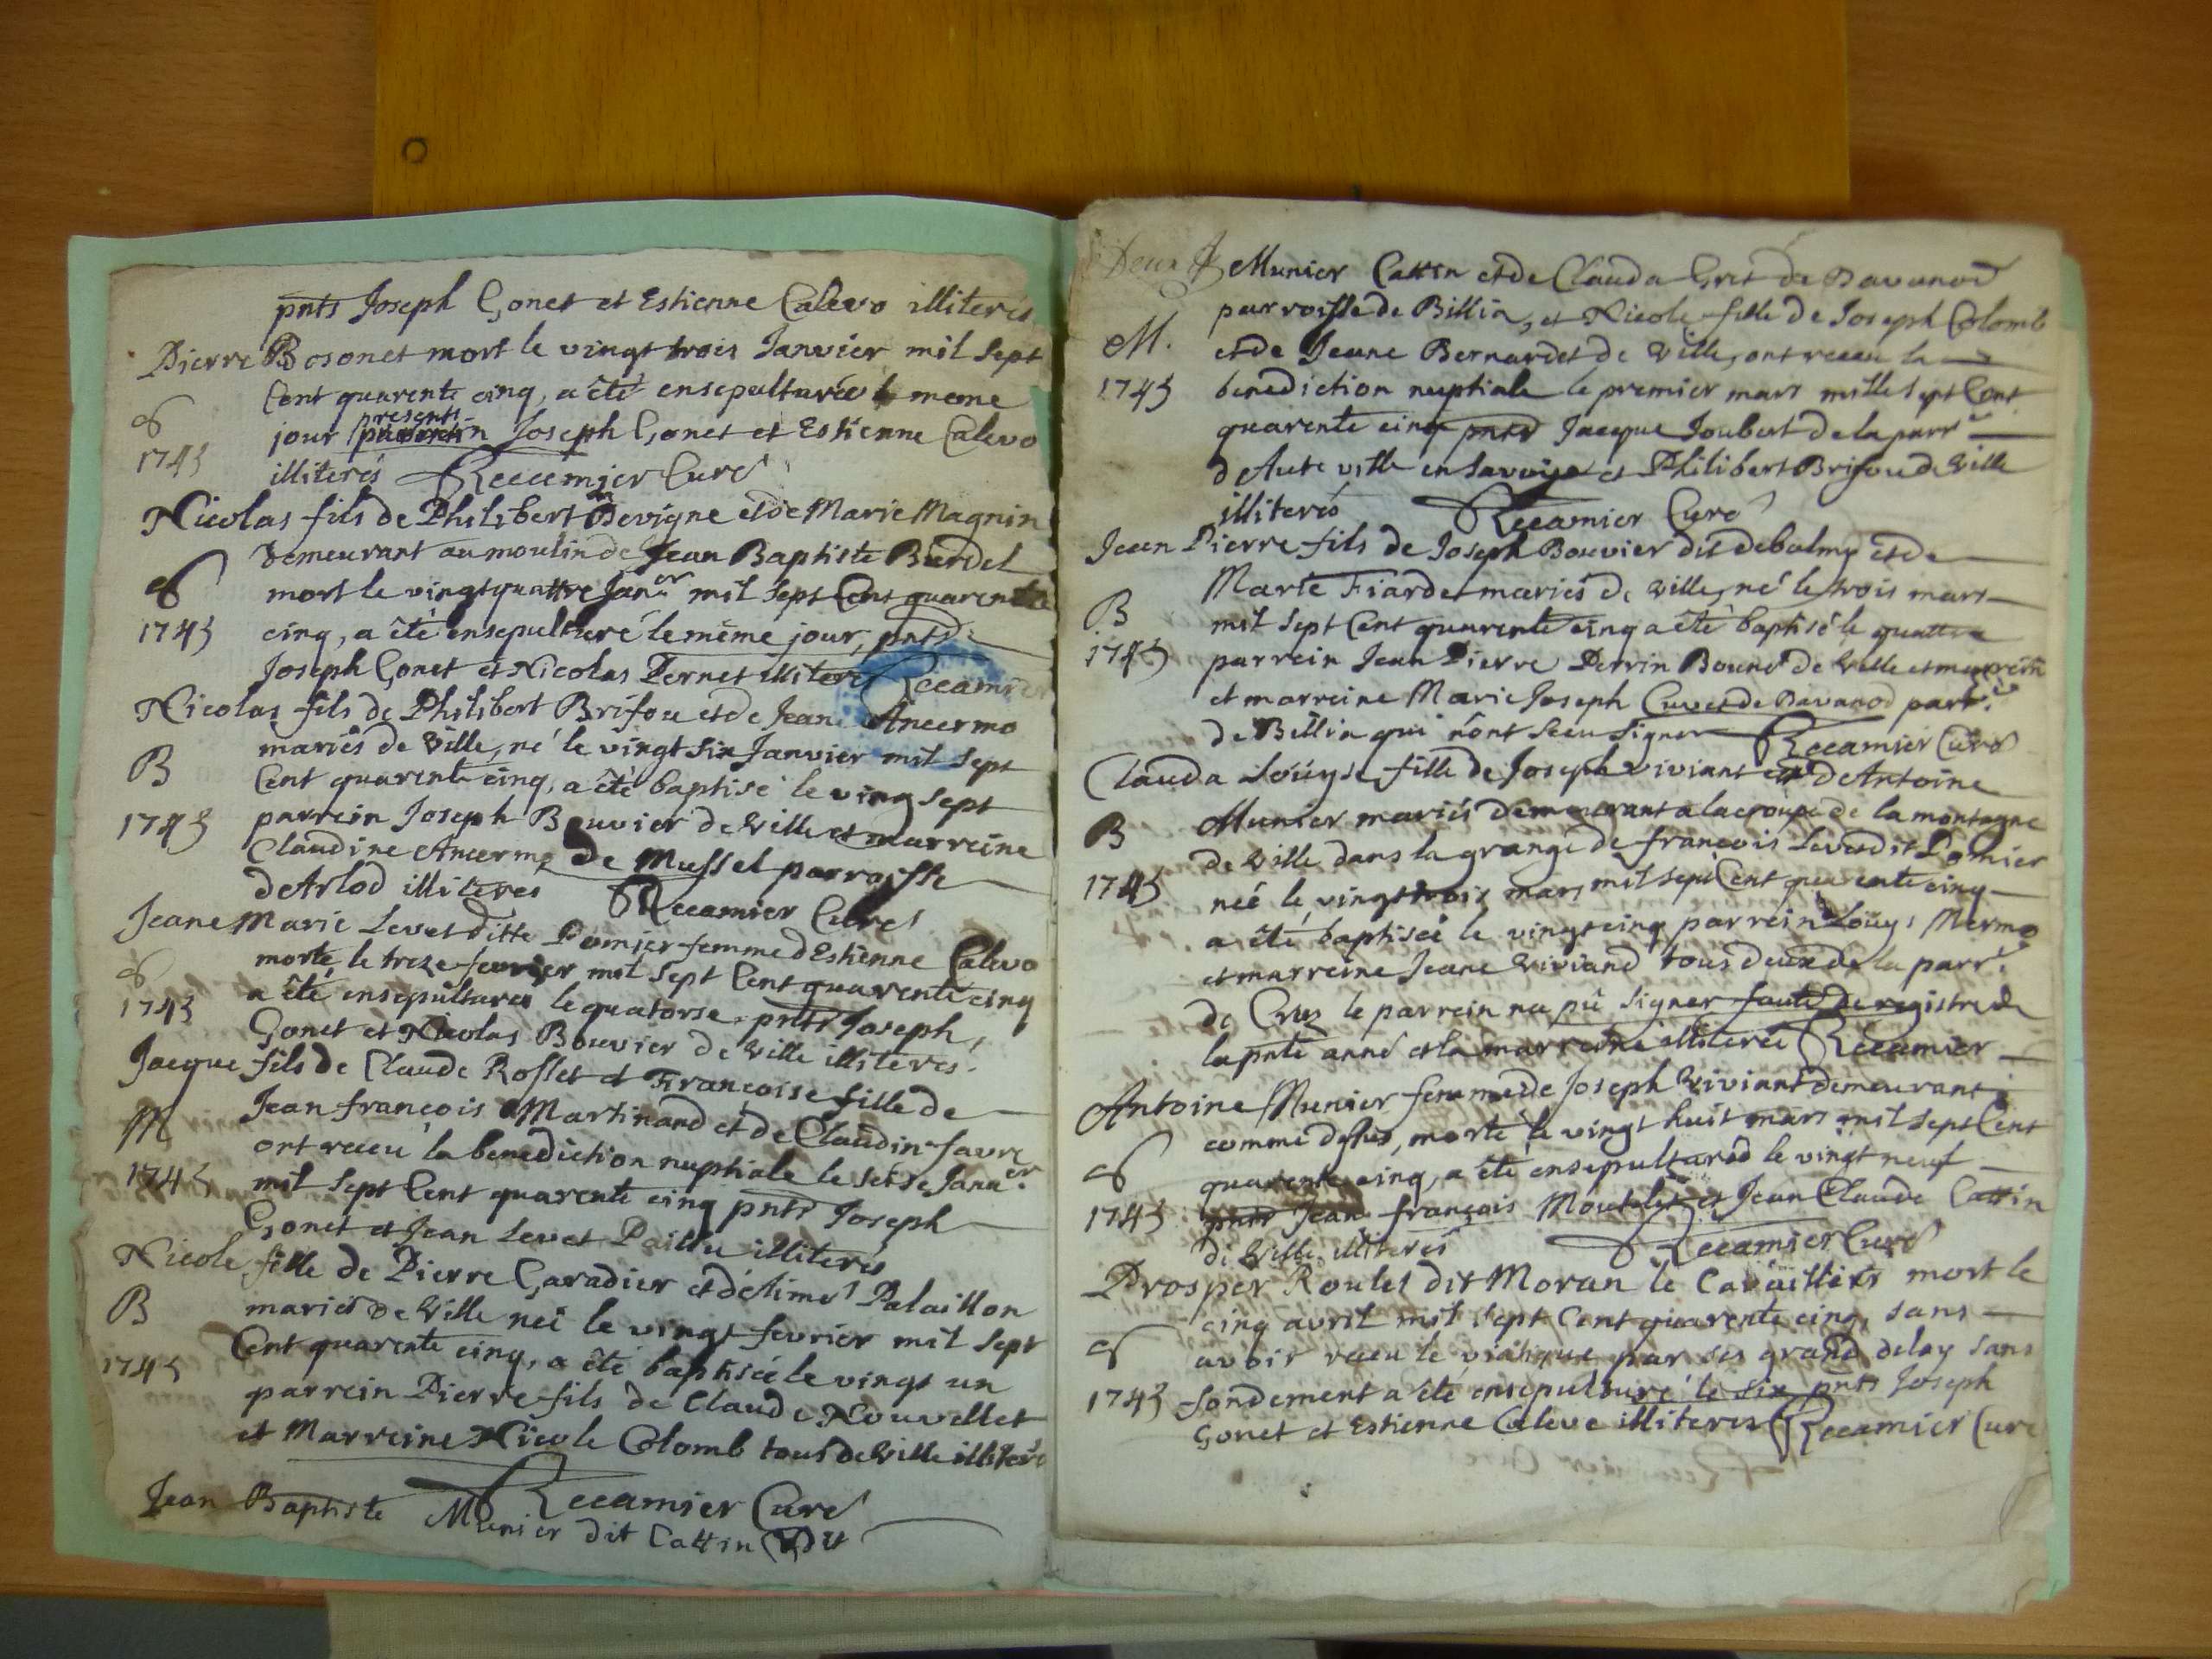 pnts Joseph Gonet et Estienne Calevo illiterés
Pierre Bosonet mort le vingt trois Janvier mil sept
Cent quarente cinq, a êté ensepulturée le meme
presents
jour Joseph Gonet et Estienne Calevo
1745
illiterés Reccamier Curé
Nicolas fils de Philibert Devigne et de Marie Magnin
demeurant au moulin de Jean Baptiste Burdel
mort le vingtquattre Janer mil sept Cent quarente
1745 cinq, a êté ensepulturé le même jour, pnts
Joseph Gonet et Nicolas Pernet illiterés Reccamier
Nicolas fils de Philibert Brifou et de Jeane Ancermo
mariés de Ville, né le vingt six Janvier mil sept
B
Cent quarente cinq, a êté baptisé le ving sept
1745 parrein Joseph Bouvier de Ville et marreine
Claudine Ancerme de Mussel parroisse
d'Arlod illiteres Reccamier Curé
Jeane Marie Levet ditte Pomier femme d'Estienne Calevo
morte le treze fevrier mil sept Cent quarente cinq
1745 a êté ensepulturée le quatorse pnts Joseph
Gonet et Nicolas Bouvier de Ville illiterés
Jacque fils de Claude Rosset et Françoise fille de
M Jean françois Martinand et de Claudine favre
ont receu la benediction nuptiale le Janer
1745 mil sept Cent quarente cinq pnts Joseph
Gonet et Jean Levet Paillu illiterés
Nicole fille de Pierre Caradier et d'Aimé Palaillon
B mariés de Ville neé le vingt fevrier mil sept
Cent quarente cinq, a êté baptisée le vingt un
1745 parrein Pierre fils de Claude Nouvellet
et Marreine Nicole Colomb tous de Ville illiterés
Reccamier Curé
Jean Baptiste Munier dit Cattin dit
Munier Cattin et de Clauda Gret de Davanod
parroisse de Billia, et Nicole fille de Joseph Colomb
M. et de Jeane Bernardet de Ville, ont receu la
1745 benediction nuptiale le premier mars mille sept Cent
quarente cinq pnts Jacque Joubert de la parre
d'Aute ville en Savoije et Philibert Brifou de Ville
illiterés Reccamier Curé
Jean Pierre fils de Joseph Bouvier dit debalmy et de
Marie Fiarde mariés de Ville, né le trois mars
B mil sept Cent quarente cinq a êté baptisé le quattre
1745 parrein Jean Pierre Perrin Bouné de Ville
et marreine Marie Joseph Cuvet de Davanod parre
de Billia qui n'ont sceu signer Reccamier Curé
Clauda Loüyse fille de Joseph Viviant et d'Antoine
Munier mariés demeurant a la croupe de la montagne
B
de Ville dans la grange de françois Levet dit Pomier
1745 neé le vingt trois mars mil sept Cent quarente cinq
a êté baptisée le vingt cinq parrein Loüys Mermo
et marreine Jeane Viviand tous deux de la parre
de Cruz le parrein na pû signer faute de registre de
la pnte anné et la marreine illiterée Réccamier
Antoine Munier femme de Joseph Viviant demeurant
comme dessus, morte le vingt huit mars mil sept Cent
quarente cinq, a êté ensepulturéd le vingt neuf
1745 pnts Jean françois Moutelet et Jean Claude Cattin
de Ville illiterés Reccamier Curé
Prosper Roulet dit Moran le Cavaillers mort le
cinq avril mil sept Cent quarente cinq, sans
avoir receu le viatique par ses grand delay sans
1745 fondement a êté ensepulturé le six pnts Joseph
Gonet et Estienne Caleve illiteres Reccamier Curé